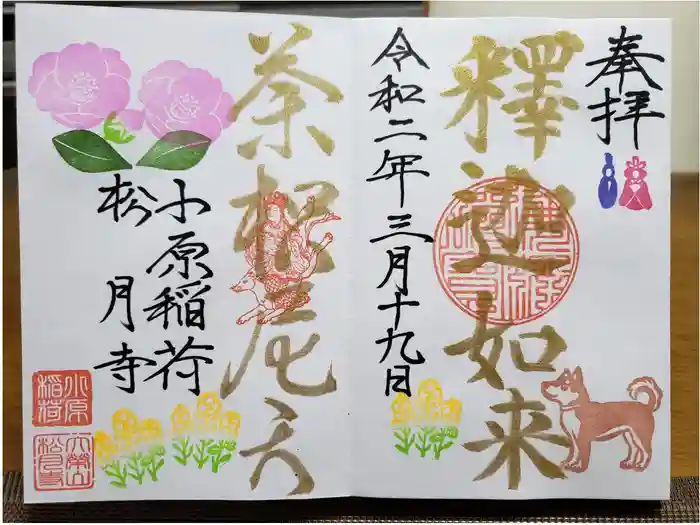 奉拝
釋迦如来
令和二年三月十九日
荼枳尼天
小原稲荷
松月寺
小原稲荷